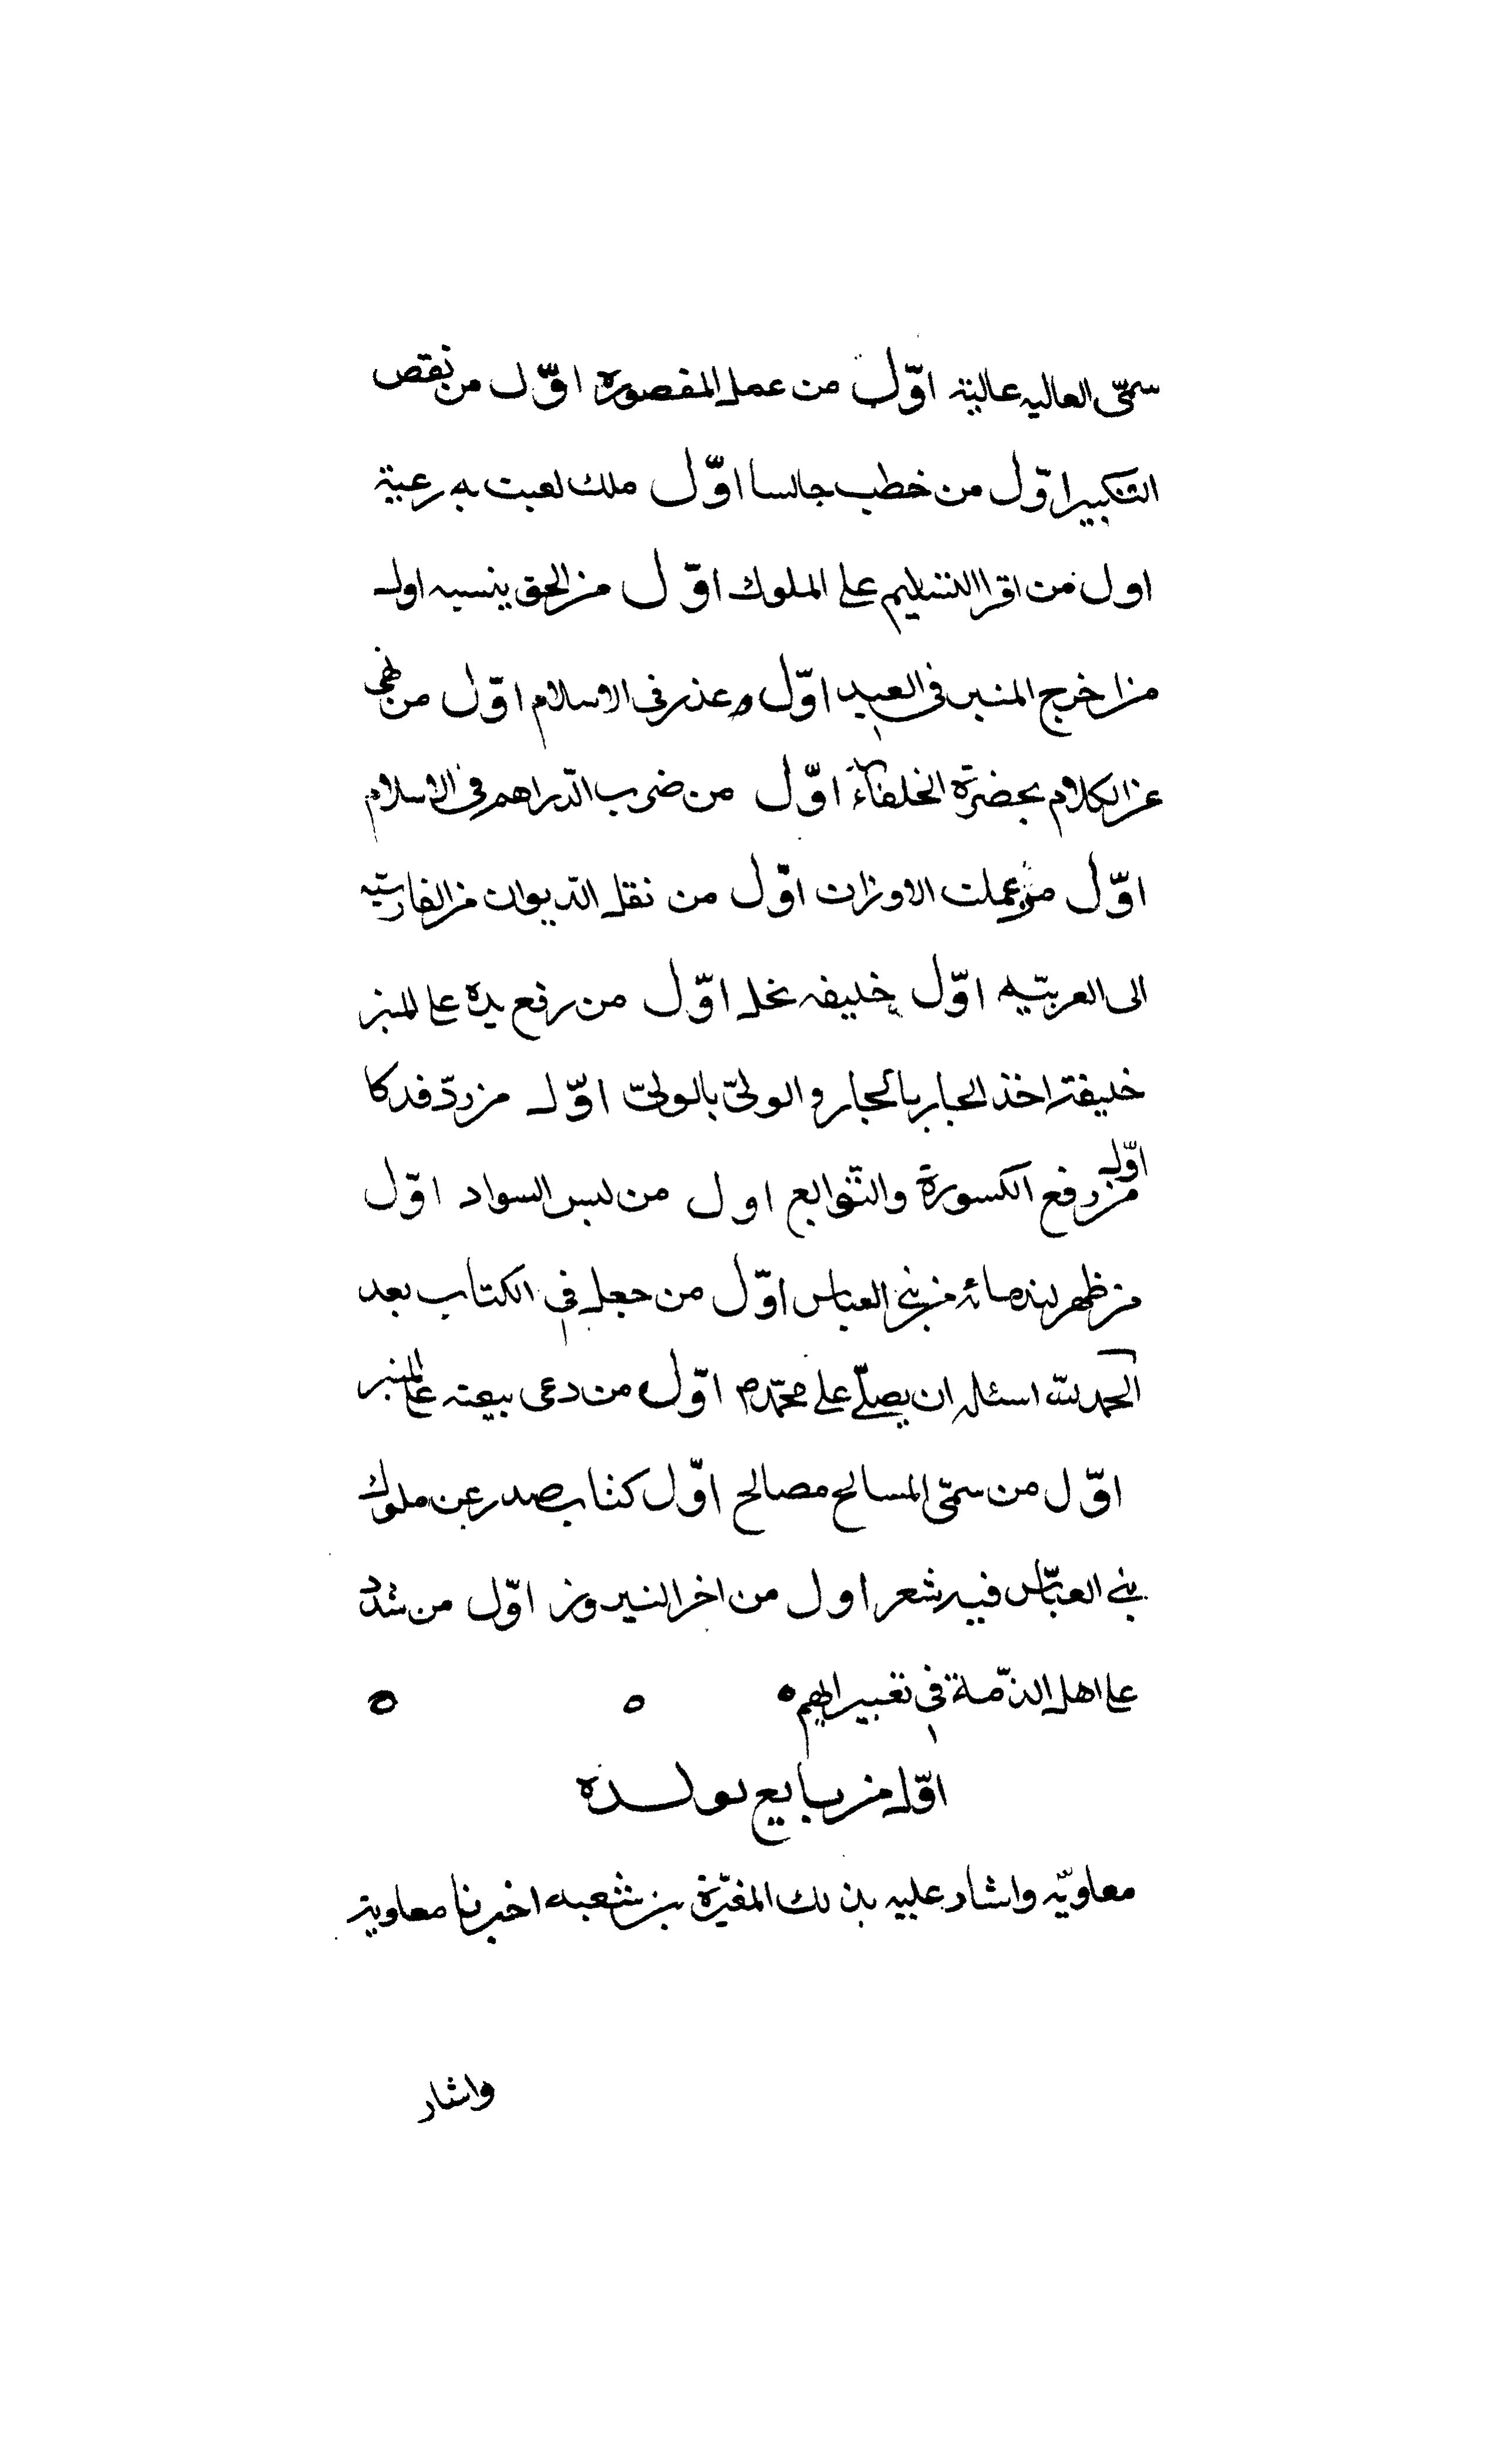 سمّى العاليه عالية اوّل من عمل المقصورة اوّل من نقص
التكبير اوّل من خطب جالسا اوّل ملك لعبت به رعية
اول من اقر االتسليم على الملوك اوّل من الحق بنسبه اول
من اخرج المنبر فى العيد اوّل عذر فى الاسلام اوّل من نهى
عن الكلام بحضرة الخلفاء اوّل من ضرب الدّراهم فى الاسلام
اوّل من عملت الاوزان اوّل من نقل الدّيوان من الفارسّيه
الى العربّيه اوّل خليفه بخل اوّل من رفع يده على المنبر
خليفة اخذ الجار بالجار والولىّ بالولىّ اوّل من ردّ فدكا
اوّل من رفع الكسورة والتوابع اول من لبس السواد اوّل
من ظهر لندمائه من بنى العباس اوّل من جعل فى الكتاب بعد
الحمد لله اسئله ان يصلّى على محمّد م اوّل من دعى بيعته على المنبر
اوّل من سمّى المسالح مصالح اوّل كتاب صدر عن ملوك
بنى العبّاس فيه شعر اول من اخر النيروز اوّل من شدد
على اهل الذّمة فى تغيير
اوّل من بايع لولده
معاويّه واشار عليه بذلك المغيّرة بن شعبه اخبرنا معاوية
واشار